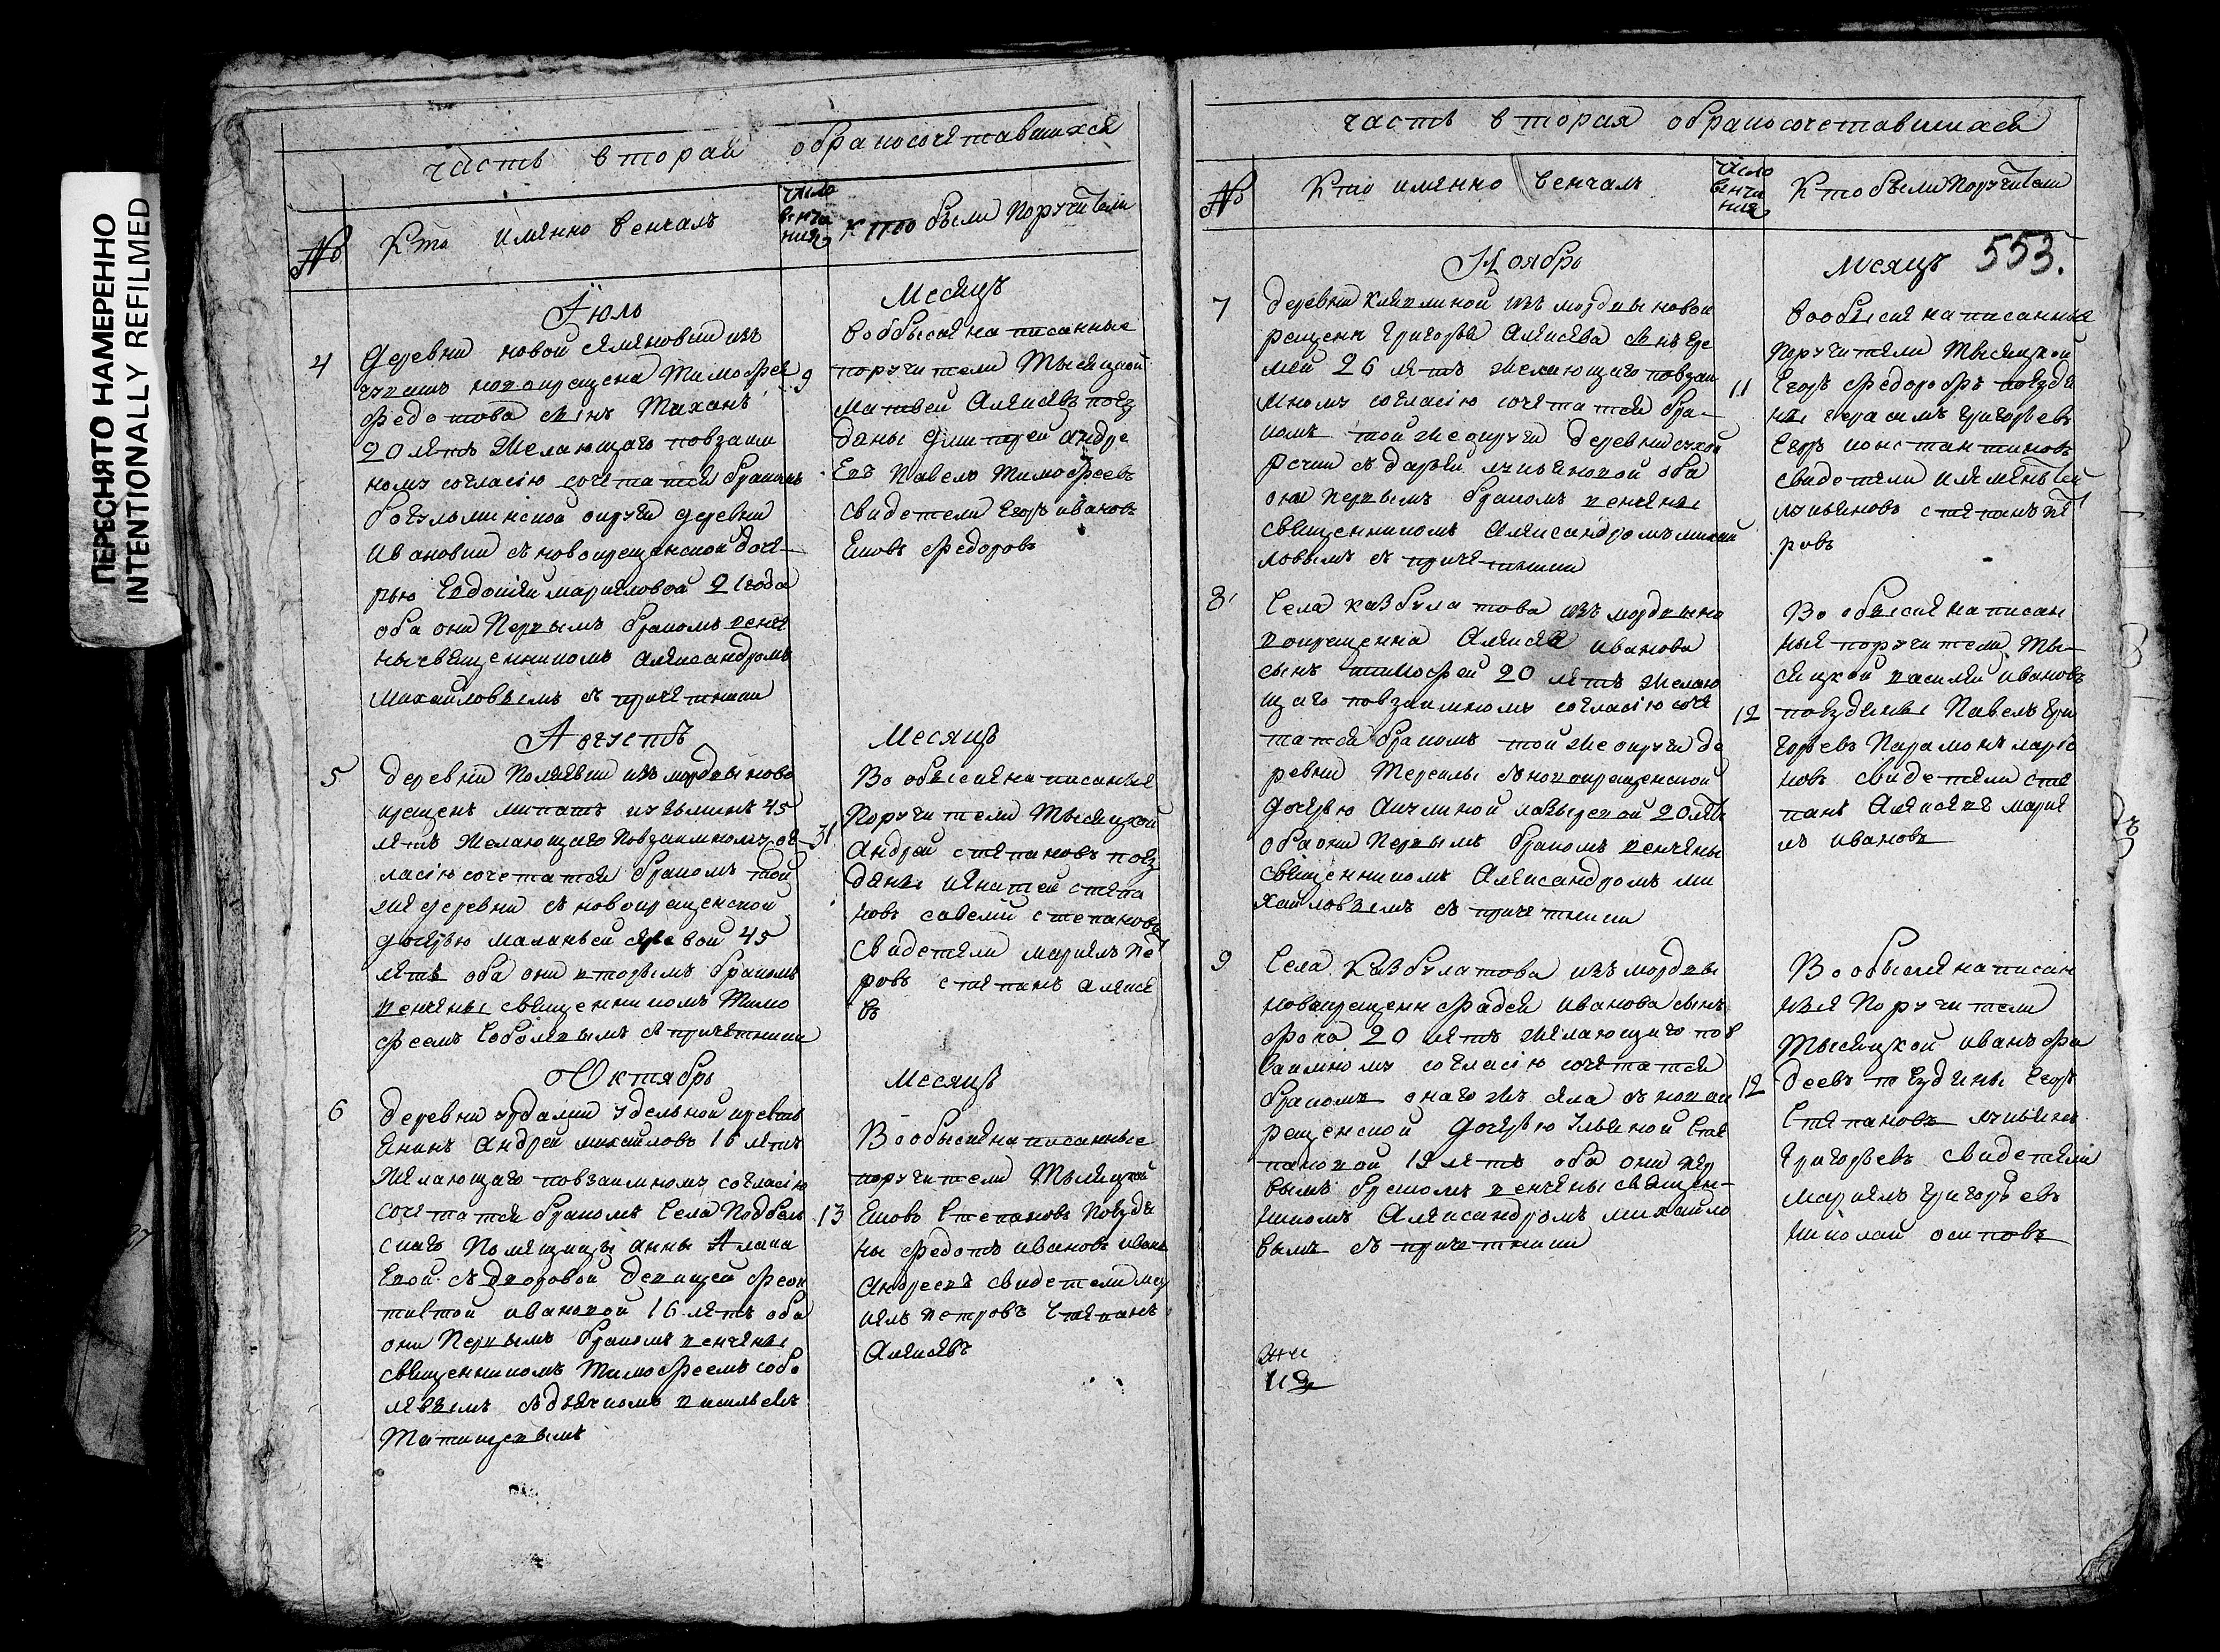 ПЕРЕСНЯТО НАМЕРЕННО
INTENTIONALLY REFILMED
часть вторая обракосочетавшихся
№
Кто имянно венчалъ
число венчания
Кто были Поручители
Іюль
Месяцъ
4
деревни новой Семеновки изъ
чувашъ новокрещена Тимофея
Федотова сынъ Михаилъ
20 летъ желающаго повзаим
ному согласію сочетатся бракомъ
богульминской округи деревни
Ивановки съ новокрещенской доче-
рью Евдокіи маркеловой 21 года
оба они Первымъ бракомъ венче
ны священникомъ александромъ
михайловымъ съ причетники
9
вобыске написанные
поручители Тысяцкой
матвеи Алексеевъ поез
даны дмитреи андре
евъ Павелъ Тимофеевъ
свидетели Егоръ ивановъ
Еловъ Федоровъ
Августъ
Месяцъ
5
деревни Полаевки изъ мордвы ново
крещенъ 45
летъ желающаго повзаимному сог
ласію сочетатся бракомъ той
же деревни съ новокрещенской
дочерью маланьей 45
летъ оба они вторымъ бракомъ
венчены священникомъ Тимо
феемъ Соболевымъ съ причетники
31
Во обыске написаныя
Поручители Тысяцкой
Андреи степановъ поез
даны игнатей степа
новъ савелий степановъ
Свидетели маркелъ пет
ровъ степанъ алексе
въ
Октябрь
Месяцъ
6
деревни удельной кресть
енинъ Андреи михаиловъ 16 летъ
желающаго повзаимному согласію
сочетатся бракомъ Села Подбель
скаго Помещицы анны
съ дворовой девицей Феок
тистой ивановой 16 летъ оба
они Первымъ бракомъ венчены
священникомъ Тимофеемъ собо
левымъ съ дьячкомъ васильемъ
Татищевымъ
13
Вообыске написанные
поручители Тысяцкой
Степановъ Поезде
ны федотъ ивановъ иванъ
андреевъ свидетели мар
келъ петровъ степанъ
Алексеевъ
часть вторая обракосочетавшихся
№
Кто имянно венчалъ
число венчания
Кто были Поручители
553.
Ноябрь
Месяцъ
7
деревни Кляклиной изъ мордвы новок
рещенн Григорья Алексеева сынъ Ере
мей 26 летъ желающаго повзаи
мному согласію сочетатся бра-
комъ той же округи деревни сухой
речки съ дарьей лукьяновой оба
они первымъ бракомъ венчены
священникомъ Александромъ михай
ловымъ съ причетники
11
вообыске написанныя
Поручители Тысяцкой
Егоръ Федоровъ поезде
ны герасимъ григорьевъ
Егоръ константиновъ
свидетели климентей
лукьяновъ степанъ пет
ровъ
8
Села казбулатова изъ мордвы но
вокрещенна Алексея иванова
сынъ тимофей 20 летъ желаю
щаго повзаимному согласію соче
татся бракомъ той же округи де
ревни Терсилы съ новокрещенской
дочерью Акулиной 20 летъ
оба они первымъ бракомъ венчены
священникомъ Александромъ ми
хайловымъ съ причетники
12
Во обыске написан
ныя поручители Ты-
сяцкой василей ивановъ
поездены Павелъ гри
горьевъ Парамонъ ларіо
новъ свидетели сте
панъ Алексеевъ марке
лъ ивановъ
9
Села Казбулатова изъ мордвы
новокрещенн фадея иванова сынъ
фока 20 летъ желающаго пов
заимному согласію сочетатся
бракомъ онаго жъ села съ новок
рещенской дочерью Ульяной Сте
пановой 19 летъ оба они пер
вымъ бракомъ венчены священ-
никомъ Александромъ михайло
вымъ съ причетники
12
Во обыске написан
ныя Поручители
Тысяцкой иванъ фа
деевъ поездены Егоръ
Степановъ лукьянъ
Григорьевъ свидетели
маркелъ григорьевъ
николай осиповъ